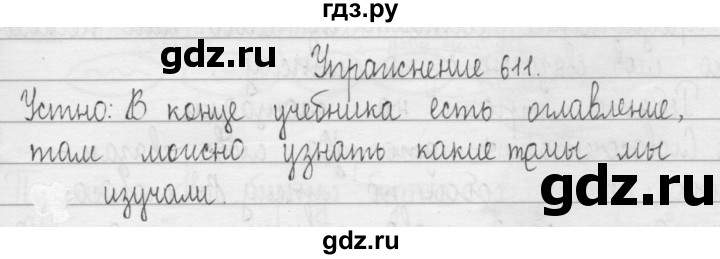 гдз.ру
gdz.ru
gdz.ru
Упражнение 611.
Устно: В конце учебника есть оглавление,
там можно узнать какие темы мы
изучали.
gdz.ru
gdz.ru
gdz.ru